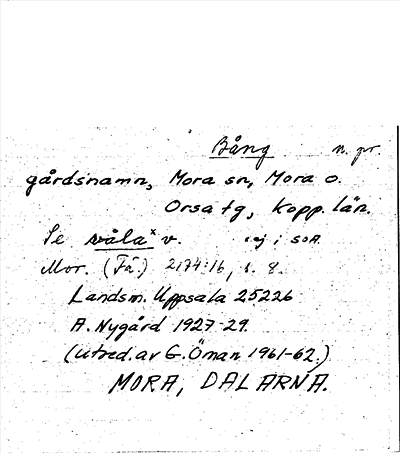 Bång n. pr.
gårdsnamn, Mora sn, Mora o.
Orsa tg, Kopp. län.
Se våla x v. ej i SOA.
Mor. (Få.) 2174:16, s. 8.
Landsm. Uppsala 25226
A. Nygård 1927-29.
(utred. av G. Öman 1961-62.)
MORA, DALARNA.